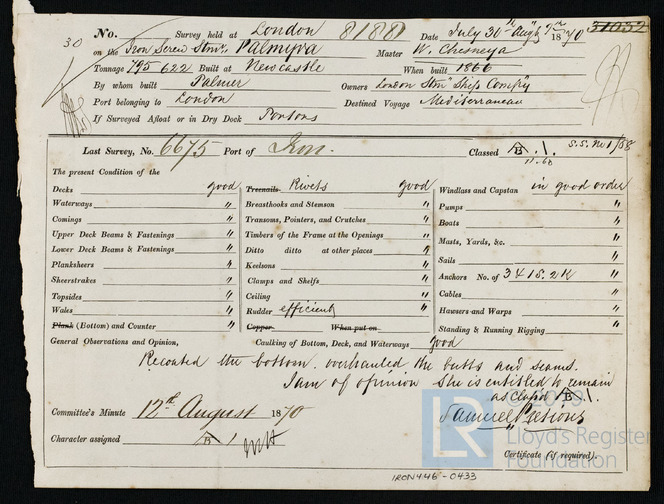 No. Survey held at London 8188 Date July 30th Augt 9th 1870 31032
30 on the Iron Screw Stmr. Palmyra Master W. Chesneya
Tonnage 795 622 Built at Newcastle When built 1866
By whom built Palmer Owners London Stm Ship Compy
Port belonging to London Destined Voyage Mediterranean
If Surveyed Afloat or in Dry Dock Porsons
Last Survey, No. 6675 Port of Iron. Classed B .1.
The present Condition of the
Decks good Treenails Rivets good Windlass and Capstan in good order
Waterways " Breasthooks and Stemson " Pumps "
Comings " Transons, Pointers, and Crutches " Boats "
Upper Deck Beams & Fastenings " Timbers of the Frame at the Openings " Masts, Yards, &c. "
Lower Deck Beams & Fastenings " Ditto ditto at other places " Sails "
Planksheers " Keelsons " Anchors No. of 3 4 1S. 2K "
Sheerstrakes " Clamps and Shelfs " Cables "
Topsides " Ceiling " Hawsers and Warps "
Wales " Rudder efficient " Standing & Running Rigging "
Plank (Bottom) and Counter " Copper When put on
General Observations and Opinion, Caulking of Bottom, Deck, and Waterways good
Recoated the bottom. overhauled the butts and seams.
I am of opinion She is entitled to remain
as Clasd B 1.
Committee's Minute 12th August 1870
Samuel
Character assigned B 1
Certificate (if required).
© 2019
LR Lloyd's Register
Foundation
IRON446-0433